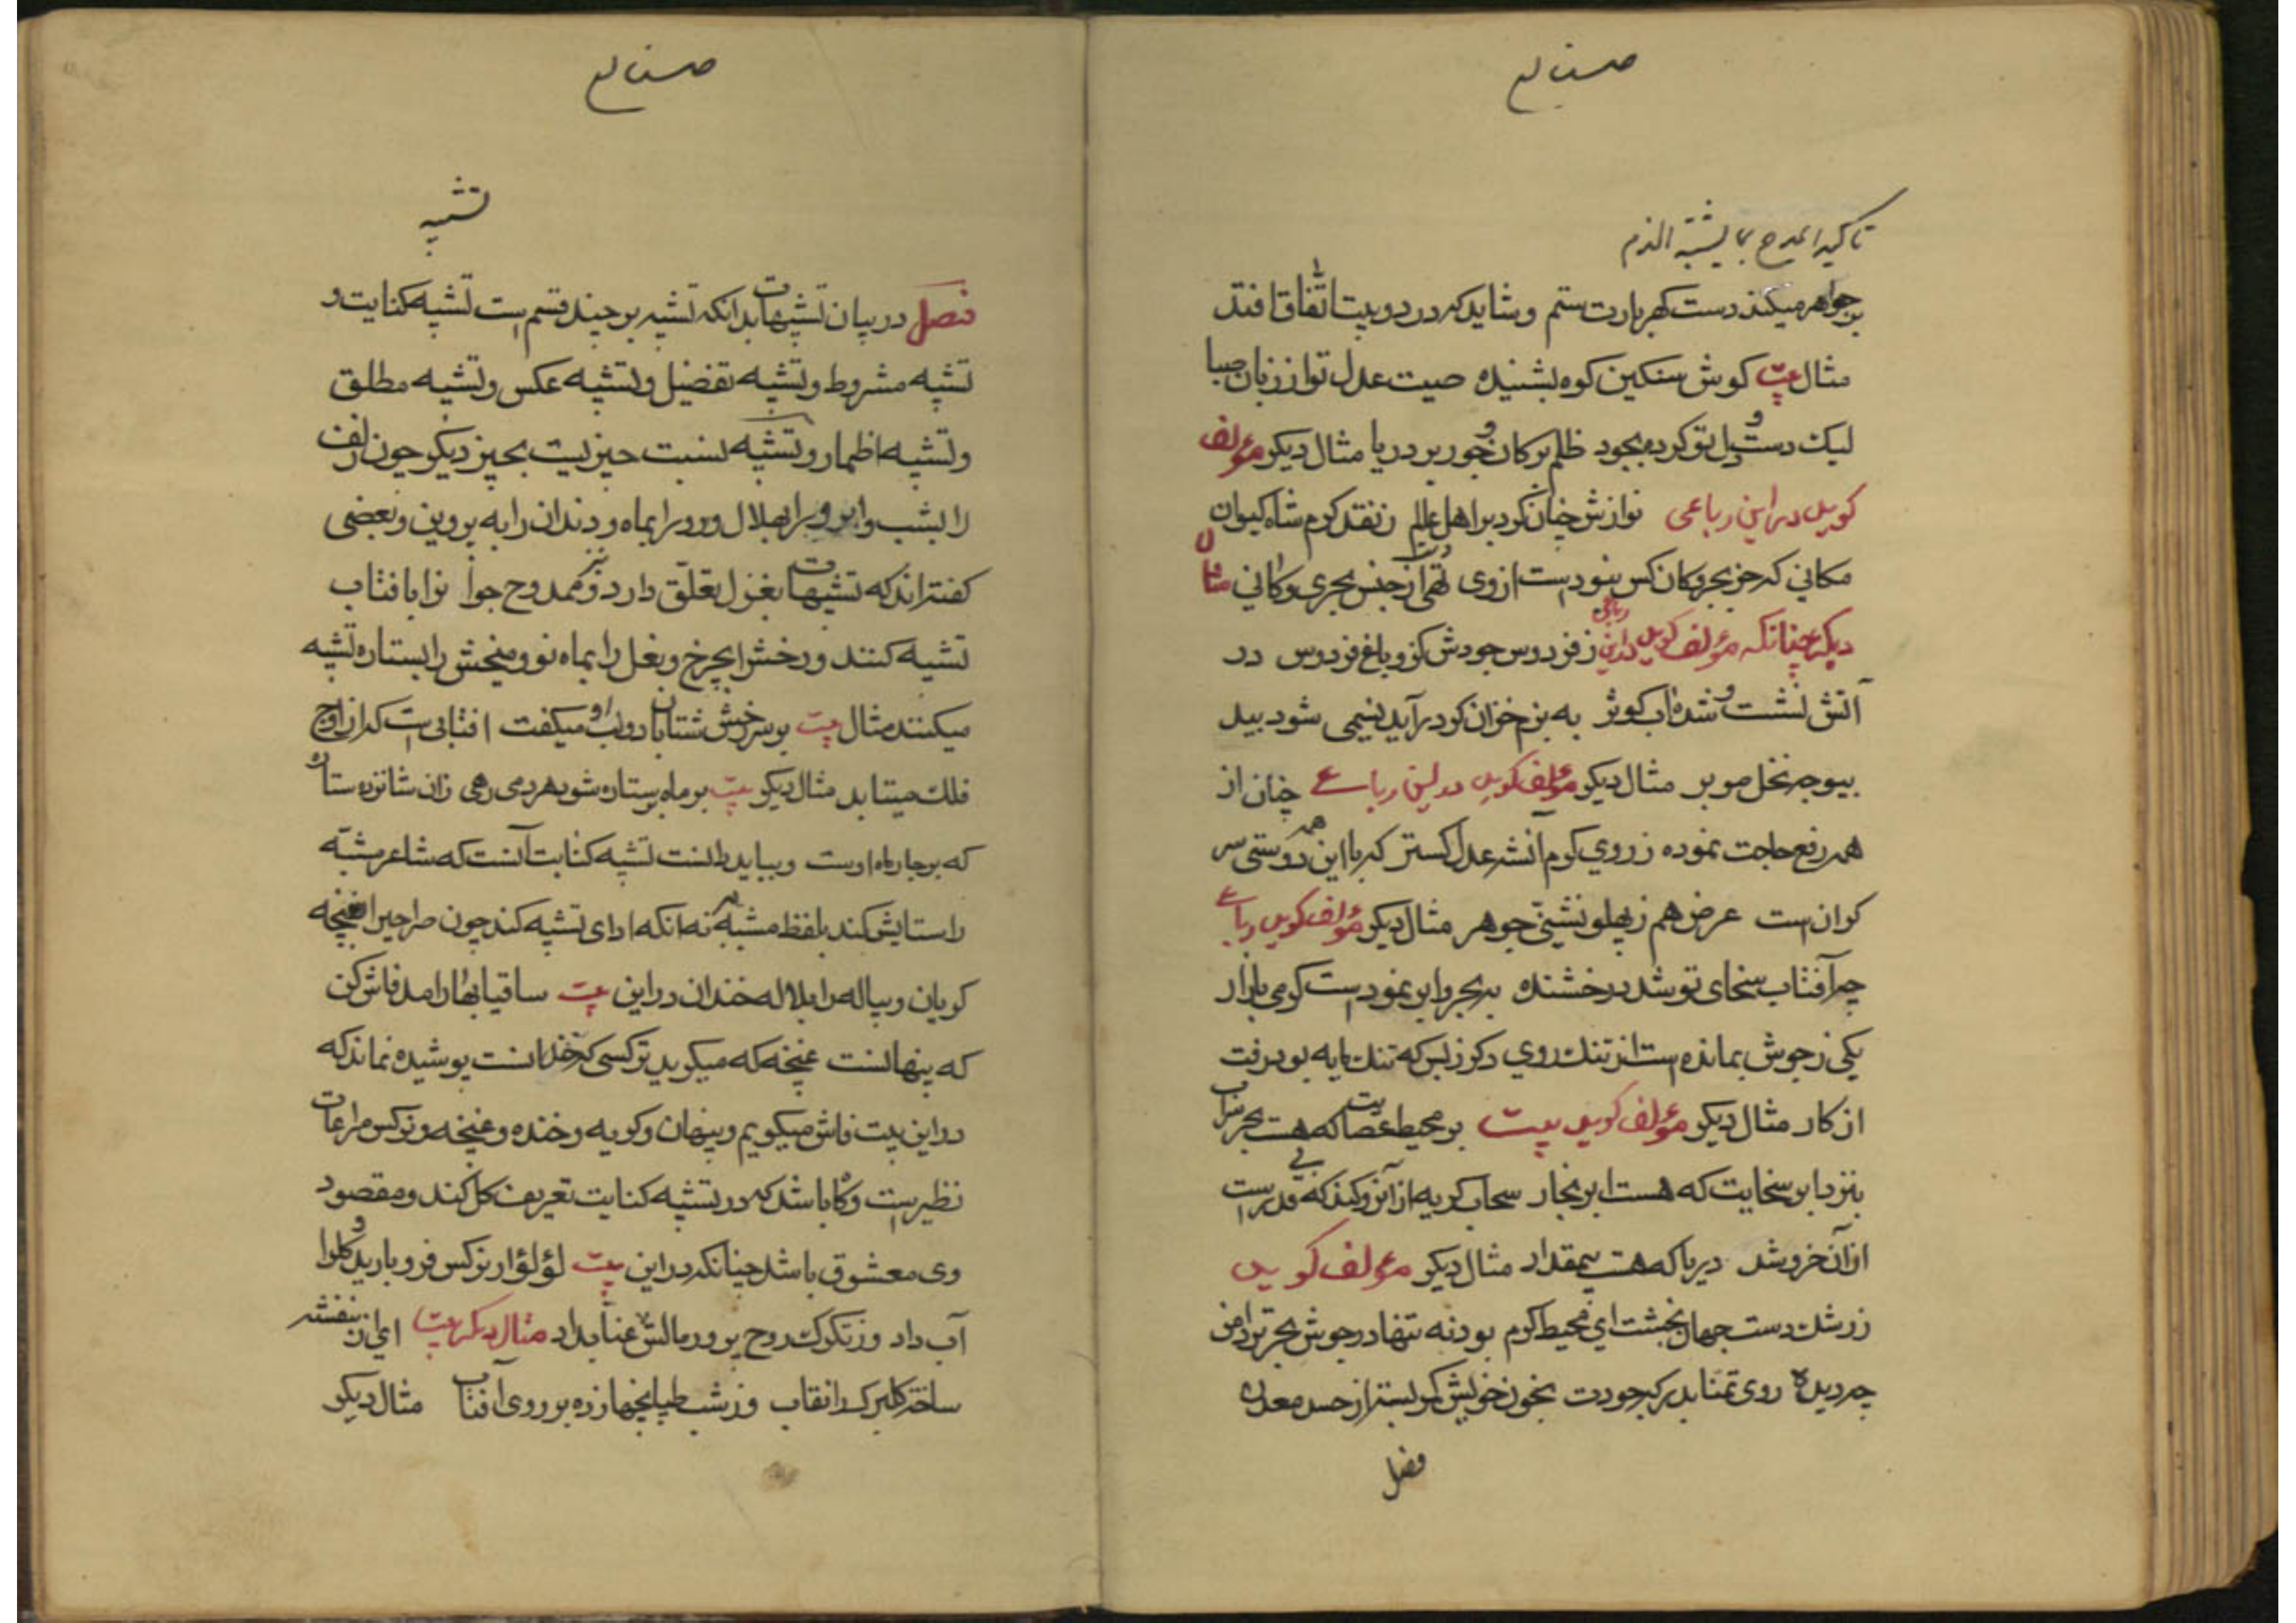 صنایع
تاکید المدح بما یشبه الذم
بر جواهر میکند دست گهربارت ستم و شاید که در دو بیت اتفاق افتد
مثال بیت کوش سنکین کوه بشنیده صیت عدل تو از زبان صبا
لیک دست و دل تو کرده بجود ظلم بر کان و جور بر دریا مثال دیکر مؤلف
کوید در این رباعی نوازش چنان کرد بر اهل عالم ز نقد کرم شاه کیوان
مکانی که جز بحر و کان کس نبودست از وی تهی از جنس بحری و کانی مثال
دیکر چنانکه مؤلف کوید در این رباعی ز فردوس جودش کزو باغ فردوس در
آتش نشست و شده آب کوثر به بزم خزان کر درآید نسیمی شود بید
بیوجه نخل موبر مثال دیکر مؤلف کوید در این رباعی چنان از
همه رفع حاجت نموده ز روی کرم آنشه عدل کستر که با این همه دوستی سر
کران است عرض هم ز پهلو نشینی جوهر مثال دیکر مؤلف کوید رباعی
چه آفتاب سخای تو شد درخشنده به بحر و ابر نمودست کرمی بازار
یکی ز جوش بمانده است از تنک روی دکر ز بس که تنک مایه بود رفت
از کار مثال دیکر مؤلف کوید بیت بر محیط عصایت که هست بحر سراب
بنزد ابر سخایت که هست ابر بخار سحاب کریه از آنرو کند که بی قدر است
از آن خروشد دریا که هست بیمقدار مثال دیکر مؤلف کوید
ز رشک دست جهان بخشت ای محیط کرم بود نه تنها در جوش بحر تر دامن
چه دیده روی تمنا بدرکه جودت بخون خویش کمر بسته از حسد معدن
فصل
صنایع
تشبیه
فصل در بیان تشبیهات بدانکه تشبیه بر چند قسم است تشبیه کنایت و
تشبیه مشروط و تشبیه تفضیل و تشبیه عکس و تشبیه مطلق
و تشبیه اظمار و تشبیه نسبت چیزیست بچیز دیکر چون زلف
را بشب و ابرو را بهلال و رو را بماه و دندان را به پروین و بعضی
کفته‌اند که تشبیهات بغزل تعلق دارد و نیز ممدوح جوا نرا بافتاب
تشبیه کنند و رخش را بچرخ و نعل را بماه نو و میخش را بستاره تشبیه
میکنند مثال بیت بر سر رخش شتابان رو او میکفت افتابی است که از اوج
فلک میتابد مثال دیکر بیت بر ماه پر ستاره شود هر دمی رهی زان شانزده ستاره
که بر چار ماه اوست و بباید دانست تشبیه کنایت آنست که شاعر مشبه
را ستایش کند بلفظ مشبه به نه انکه ادای تشبیه کند چون صراحی را بغنچه
کویان و پیاله را بلاله خندان در این بیت ساقیا بهار امد فاش کن
که پنهانست غنچه که میکوید نرکسی که خندانست پوشیده نماند که
در این بیت فاش میکویم و پنهان و کویه و خنده و غنچه و نرکس مراعات
نظیر است و کاه باشد که در تشبیه کنایت تعریف کل کند و مقصود
وی معشوق باشد چنانکه در این بیت لؤلؤ از نرکس فرو بارید و کل را
آب داد وز تکرک روح پرور مالش عناب داد مثال دیکر بیت ای ز بنفشه
ساخته کلبرک را نقاب وز شب طپانچها زده بر روی آفتاب مثال دیکر